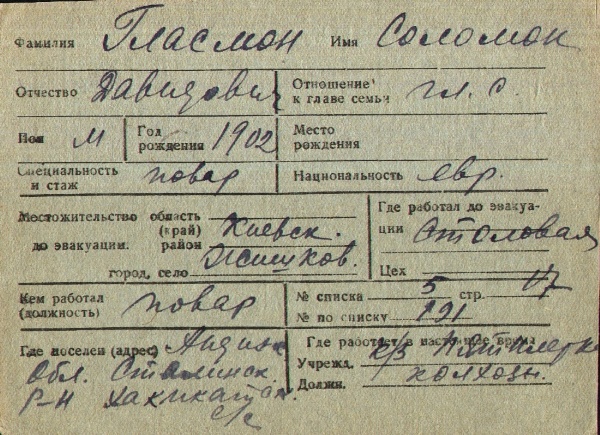 Фамилия Гласмон Имя Соломон
Отчество Давидович Отношение к главе семьи гл. с.
Пол М Год рождения 1902 Место рождения
Специальность и стаж повар Национальность евр.
Местожительство до эвакуации. область (край) Киевск. Где работал до эвакуации Столовая
район Жашков.
город, село Цех
Кем работал (должность) повар № списка 5 стр. 17
№ по списку 191
Где поселен (адрес) Андиж. Где работает в настоящее время
Обл. Сталинск. Учрежд. к/з Пятилетка
Р-н с/с Должн. колхозн.